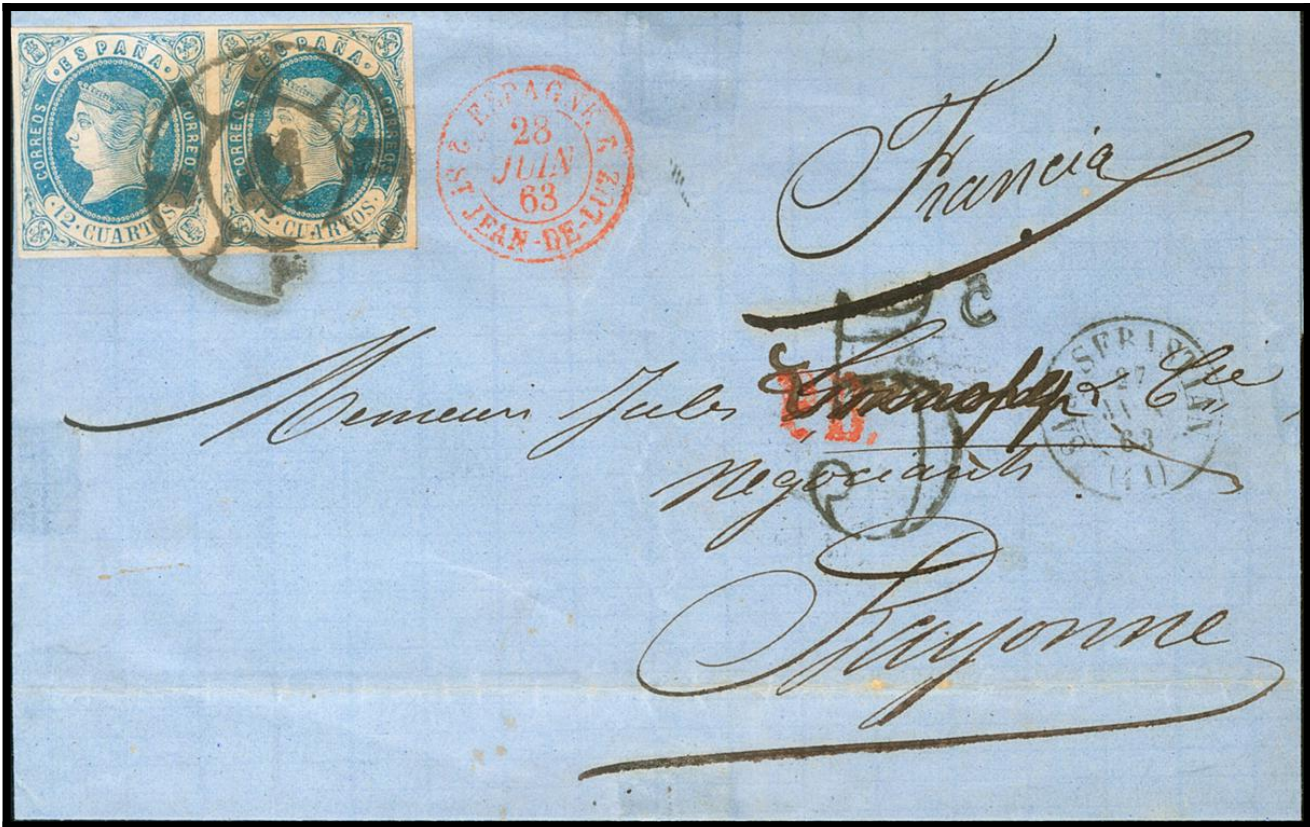 ESPAÑA ESPAÑA
CORREOS CORREOS CORREOS CORREOS
12 CUARTOS. 12 CUARTOS.
2 ESPAGNE 2
28
JUIN
63
ST JEAN-DE-LUZ
Francia
5 C
P.D.
SAN SEBASTIAN
27
63
Messieurs Jules & Cie
Negociants
Bayonne